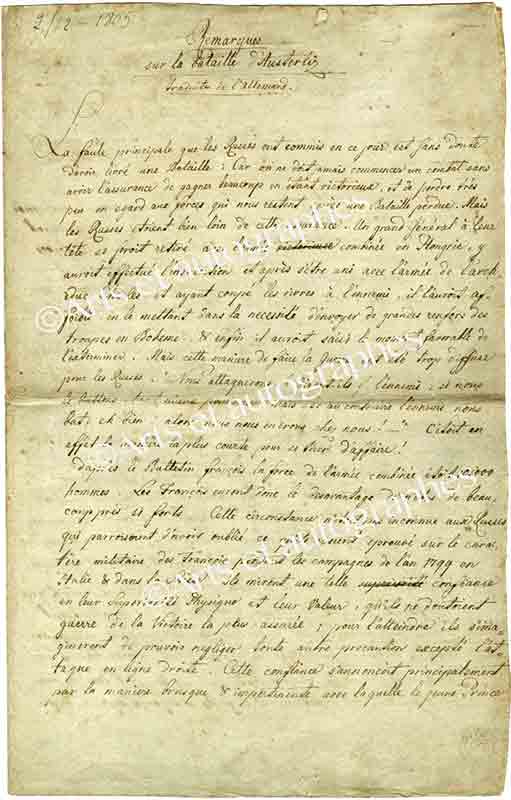 2/12 - 1805
Remarques
sur la bataille d'Austerliz
traduite de l'allemand.
La faute principale que les Russes ont commis en ce jour est sans doute
d'avoir livré une Bataille : Car on ne doit jamais commencer un combat sans
avoir l'assurance de gagner beaucoup en étant victorieux, et de perdre très
peu en egard aux forces qui nous restent, après une Bataille perdue. Mais
les Russes étoient bien loin de cette assurance. Un grand Général à leur
tête se seroit retiré avec l'armée combinée en Hongrie, y
auroit effectué l'insurrection et après s'être uni avec l'armée de l'arch
duc et ayant coupé les vivres à l'ennemi, il l'auroit af
foibli en le mettant dans la necessité d'envoyer de grands renforts des
troupes en Boheme. & enfin il auroit saisi le moment favorable de
l'exterminer. Mais cette manière de faire la Guerre étoit trop
pour les Russes. Nous attaquerons l'ennemi, et nous
le battrons si au contraire l'ennemi nous
bat, eh bien alors nous nous en irons chez nous! C'étoit en
effet la manière la plus courte pour se tirer d'affaire!
d'après le Bulletin françois la force de l'armée combinée étoit
hommes. Les François eurent donc le desavantage d'être de beau,
coup près si forts. Cette circonstance n'étoit pas inconnue aux Russes
qui parroissent d'avoir oublié ce qu'ils avoient eprouvé sur le carac
tère militaire des François pendant les campagnes de l'an 1799 en
Italie & dans la Suisse. Ils mirent une telle confiance
en leur Superiorité Physique et leur Valeur, qu'ils ne doutoient
guèrre de la Victoire la plus assurée ; pour l'atteindre ils s'ima
ginerent de pouvoir negliger toute autre precaution excepté l'at
taque en ligne droite. Cette confiance s'annoncent principalement
par la manière brusque & impertinente avec laquelle le jeune Prince
©Arts et autographes
©Arts et autographes
©Arts et autographes